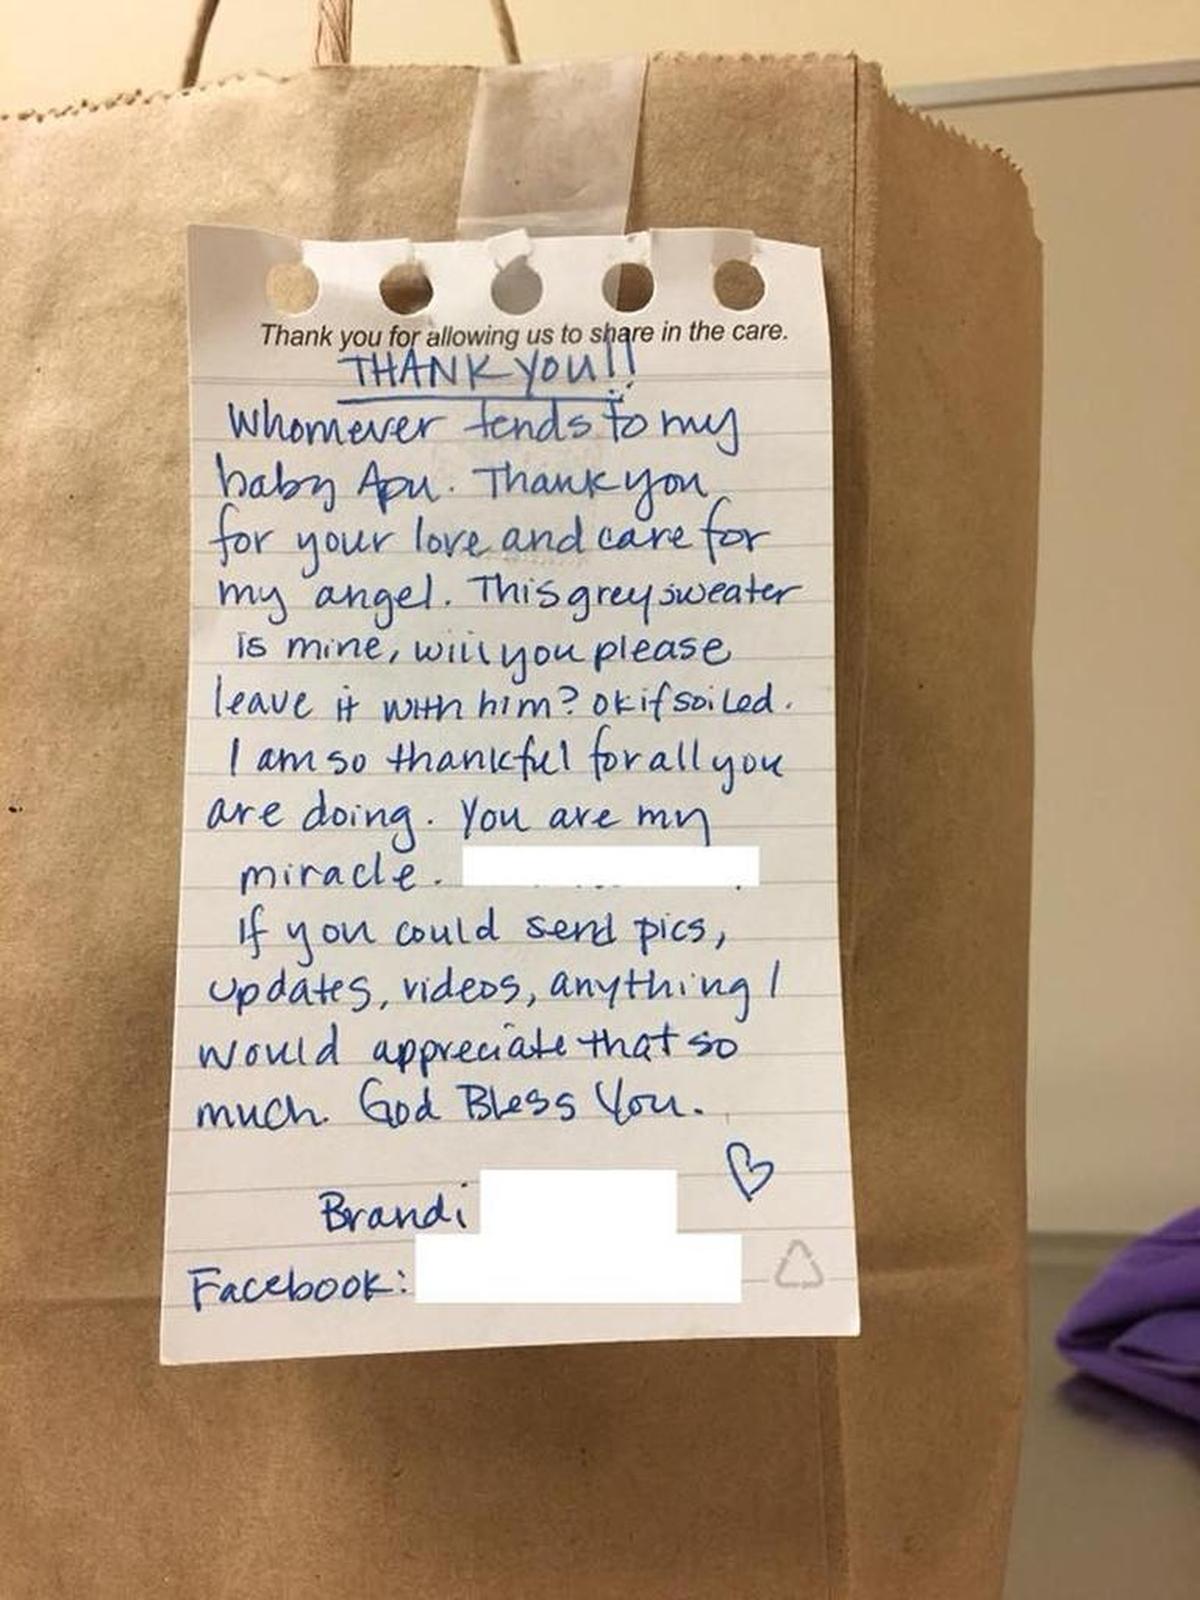 Thank you for allowing us to share in the care.
THANK YOU!!
Whomever tends to my
baby Apu. Thank you
for your love and care for
my angel. This grey sweater
is mine, will you please
leave it with him? OK if soiled.
I am so thankful for all you
are doing. You are my
miracle.
If you could send pics,
updates, videos, anything I
would appreciate that so
much. God Bless You.
Brandi
Facebook: